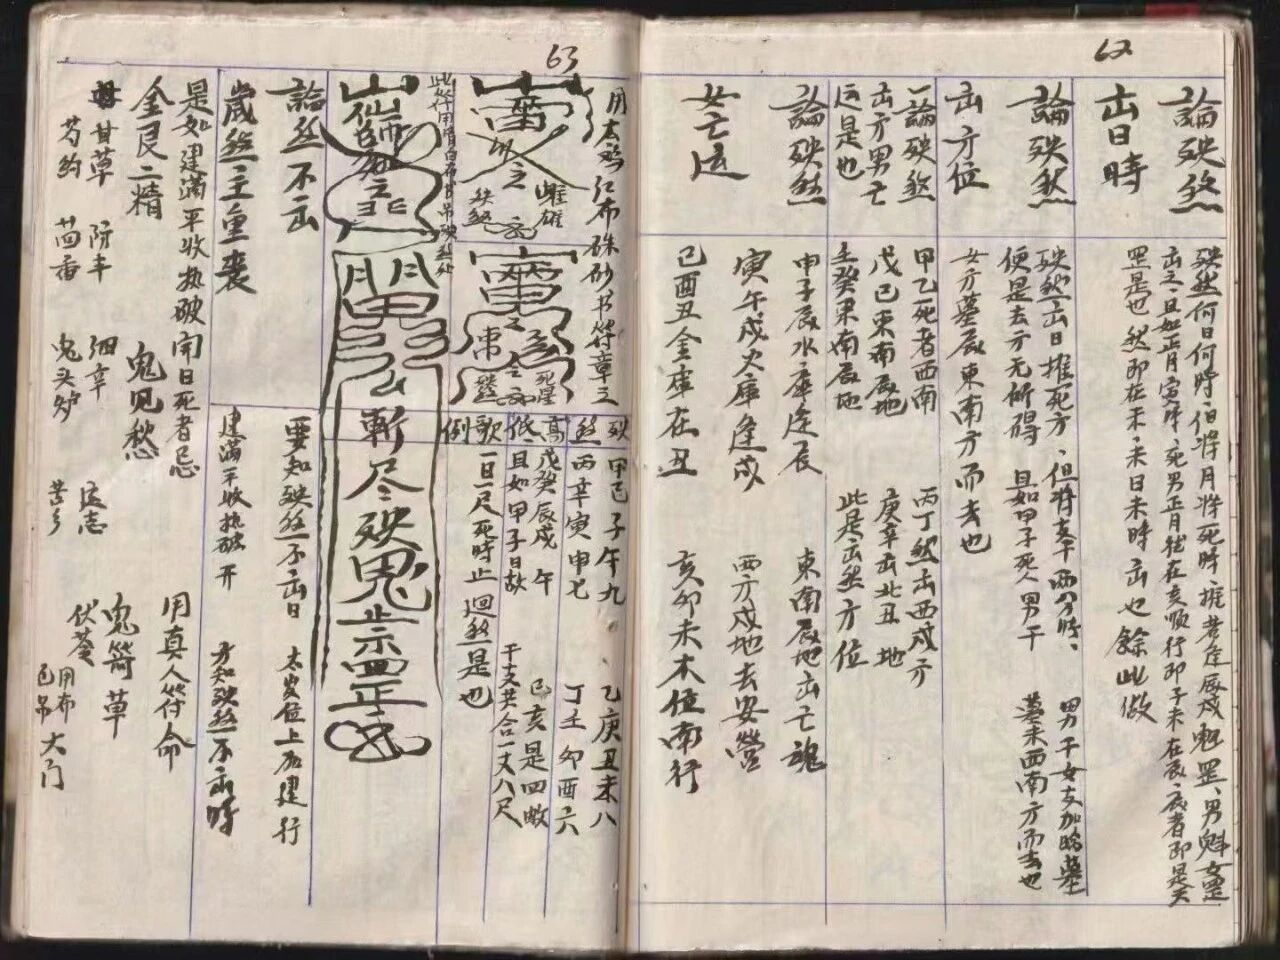 62
論殃煞
出日時
殃煞何日何時 但将月将死時推 若逢辰戍魁罡 男魁女罡
出之 且如正月寅時死 男正月起在亥順行 即子未在辰 辰者即是天
罡是也 煞即在未 未日未時出也 餘此做
論殃煞
出方位
殃煞出日推死方 但将亥干両分時
男干女支加臨墓
便是去方无所碍 且如甲子死人男干
墓未西南方而去也
女方墓辰東南方而去也
一論殃煞
出方男亡
运是也
甲乙死者西南
丙丁煞出西戍方
戊己東南辰地
庚辛出北丑地
壬癸東南辰地
此是出煞方位
論殃煞
女亡运
甲子辰水庫逢辰
東南辰地出亡魂
寅午戍火庫逢戍
西方戍地去安營
己酉丑金庫在丑
亥卯未木位南行
63
用太鸡仁布硃砂书符章三
雌雄
殃煞
此符用
殃煞高低歌例
甲己子午九
乙庚丑未八
丙辛寅申七
丁壬卯酉六
戊癸辰戍午
己亥是四敝
且如甲子日故
干支共合一丈八尺
一日一尺死時止 迴煞是也
斬尽殃鬼
論煞不出
歲煞主重喪
要知殃煞不出日
太岁位上后建行
建滿平收执破开
方知殃煞不出時
是如建滿平收执破開日死者忌
用真人符命
金艮二精
鬼见愁
鬼箭草
甘草
防丰
细辛
远志
伏苓
芍约
茴香
鬼头炉
苦乡
用布包吊大门